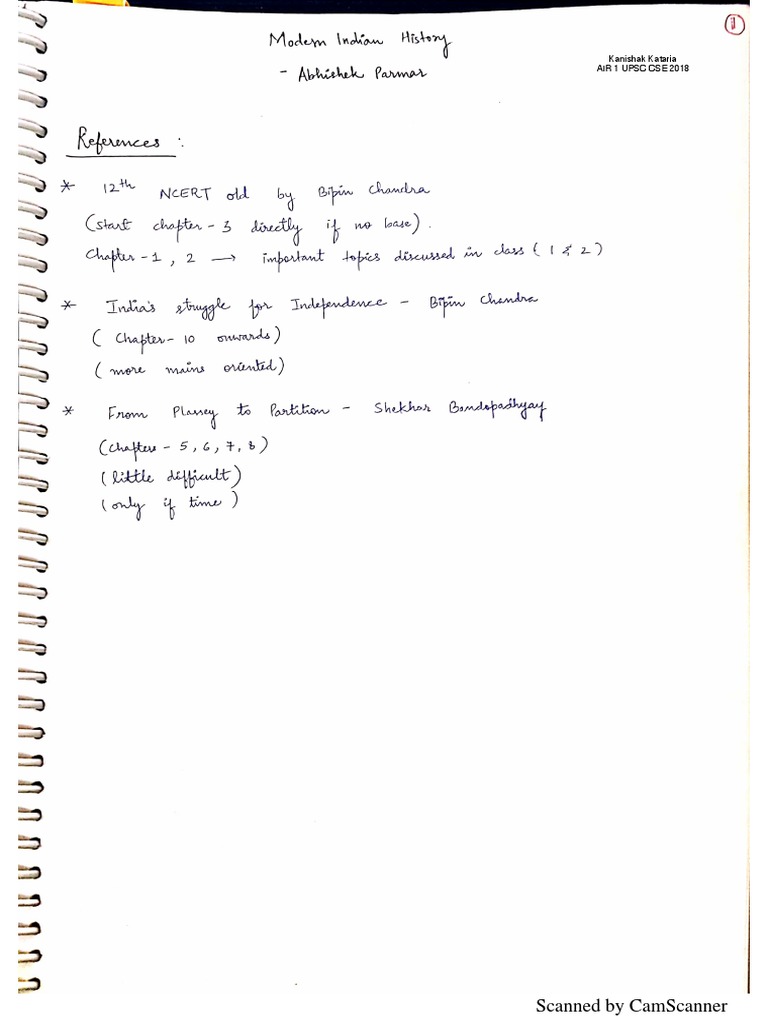 1
Modern Indian History
- Abhishek Parmar
Kanishak Kataria
AIR 1 UPSC CSE 2018
References :
* 12th NCERT old by Bipin Chandra
(start chapter - 3 directly if no base).
Chapter - 1, 2 → important topics discussed in class (1 & 2)
* India's struggle for Independence - Bipin Chandra
(Chapter - 10 onwards)
(more mains oriented)
* From Plassey to Partition - Shekhar Bandopadhyay
(Chapters - 5, 6, 7, 8)
(little difficult)
(only if time)
Scanned by CamScanner